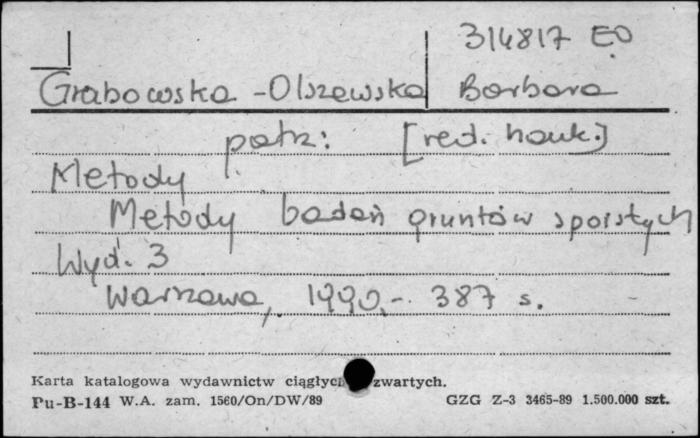 314817 EO
Grabowska-Olszewska Barbara
patrz: [red. nauk.]
Metody
Metody badań gruntów spoistych
Wyd. 3
Warszawa, 1990.- 387 s.
Karta katalogowa wydawnictw ciągłych zwartych.
Pu-B-144 W.A. zam. 1560/On/DW/89 GZG Z-3 3465-89 1.500.000 szt.